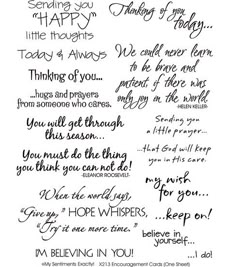 Sending you
"HAPPY"
little thoughts
Thinking of you
today...
Today & Always
Thinking of you...
...hugs and prayers
from someone who cares.
We could never learn
to be brave and
patient if there was
only joy in the world.
HELEN KELLER
You will get through
this season...
Sending you
a little prayer...
...that God will keep
you in His care.
You must do the thing
you think you can not do!
-ELEANOR ROOSEVELT-
my wish
for you...
When the world says,
"Give up," HOPE WHISPERS,
"Try it one more time."
...keep on!
believe in
yourself...
I'M BELIEVING IN YOU!
...I do!
©My Sentiments Exactly! X213 Encouragement Cards (One Sheet)